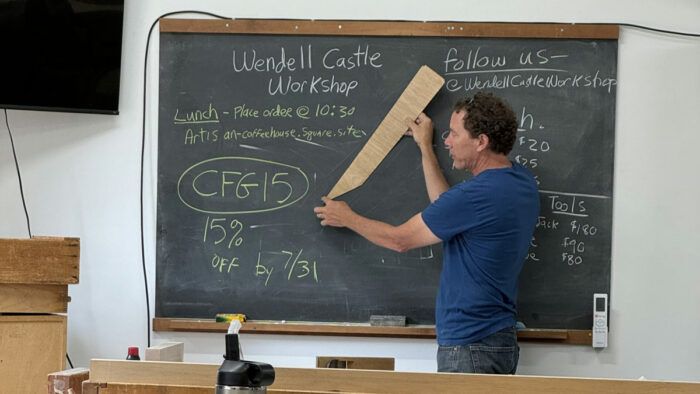 Wendell Castle
Workshop
follow us—
@WendellCastleWorkshop
Lunch - Place order @ 10:30
Artisan-coffeehouse.square.site
CFG15
15% —
OFF by 7/31
h.
$20
$25
Tools
Jack $180
$90
$80